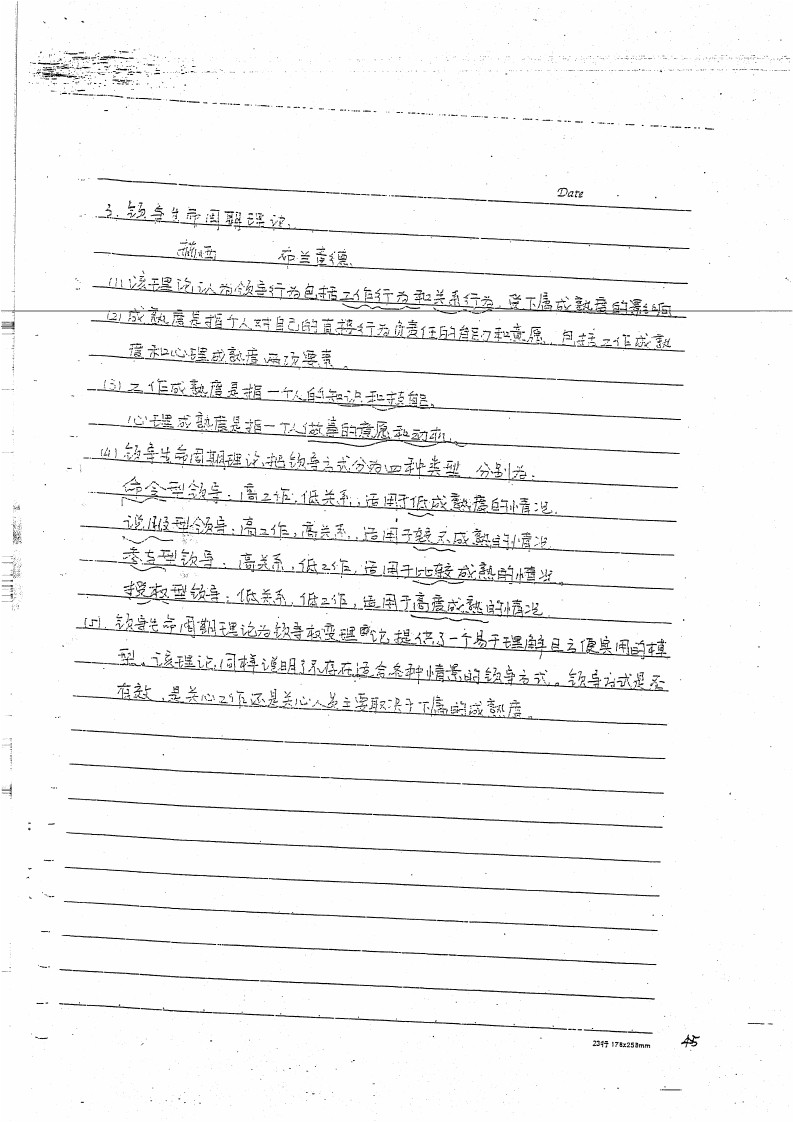 Date
3. 领导生命周期理论.
赫西 布兰查德.
(1) 该理论认为领导行为包括工作行为和关系行为, 受下属成熟度的影响
(2) 成熟度是指个人对自己的直接行为负责任的能力和意愿. 包括工作成熟
度和心理成熟度两项要素。
(3) 工作成熟度是指一个人的知识和技能.
心理成熟度是指一个人做事的意愿和动机.
(4) 领导生命周期理论把领导方式分为四种类型. 分别为:
命令型领导: 高工作, 低关系, 适用于低成熟度的情况.
说服型领导: 高工作, 高关系, 适用于较不成熟的情况
参与型领导: 高关系, 低工作, 适用于比较成熟的情况。
授权型领导: 低关系, 低工作, 适用于高度成熟的情况
(5). 领导生命周期理论为领导权变理论提供了一个易于理解且方便实用的模
型. 该理论同样说明了不存在适合各种情景的领导方式。领导方式是否
有效, 是关心工作还是关心人员主要取决于下属的成熟度。
23行 178x258mm
45